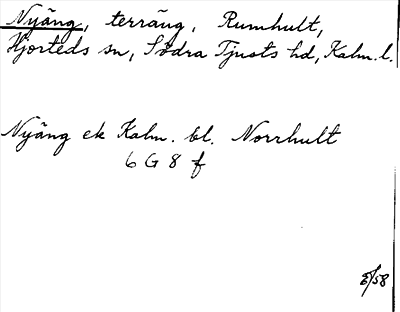 Nyäng, terräng, Rumhult,
Hjorteds sn, Södra Tjusts hd, Kalm. l.
Nyäng ek Kalm. bl. Norrhult
6 G 8 f
/58